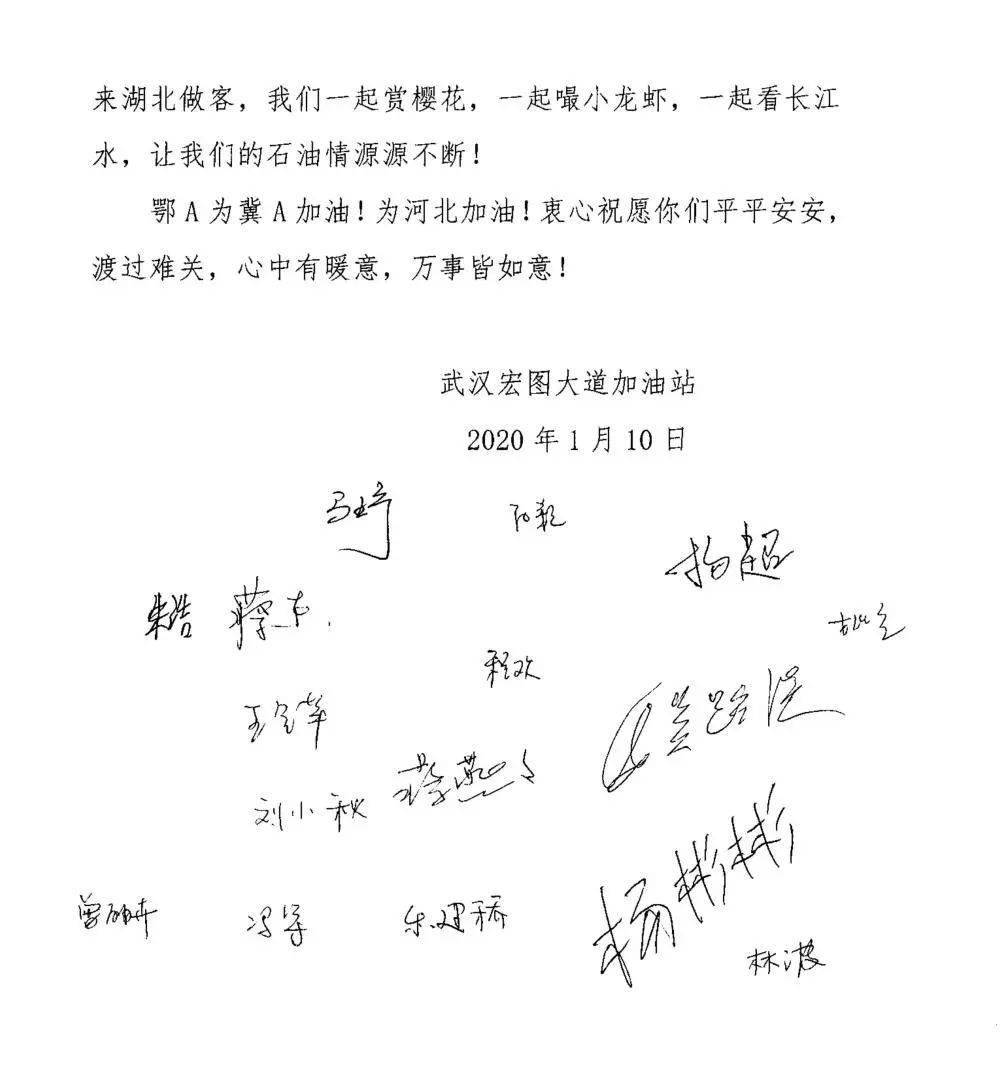 来湖北做客，我们一起赏樱花，一起嘬小龙虾，一起看长江
水，让我们的石油情源源不断！
鄂A为冀A加油！为河北加油！衷心祝愿你们平平安安，
渡过难关，心中有暖意，万事皆如意！
武汉宏图大道加油站
2020年1月10日
杨超
朱浩
程欢
刘小秋
杨彬彬
林波